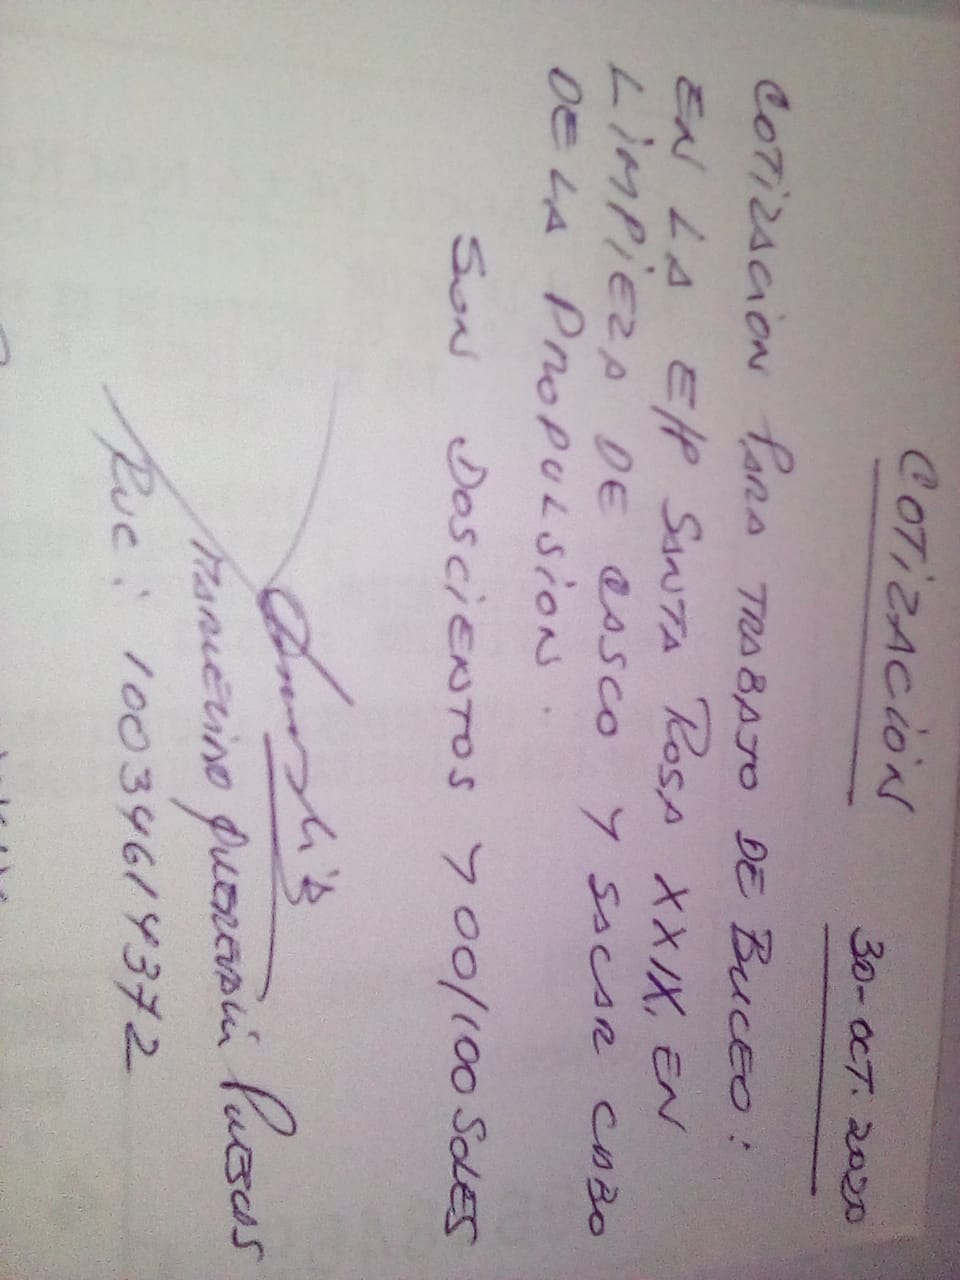 COTIZACIÓN
30-OCT. 2020
COTIZACION PARA TRABAJO DE BUCEO:
EN LA E/P SANTA ROSA XXIX, EN
LIMPIEZA DE CASCO Y SACAR CABO
DE LA PROPULSION.
SON DOSCIENTOS Y 00/100 SOLES
PUESCAS
RUC: 10034614372